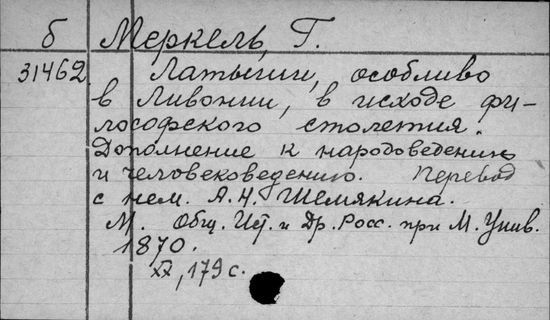 б Меркель, Г.
31462 Латыши, особливо
в Ливонии, в исходе фи-
лософского столетия.
Дополнение к народоведению
и человековедению. Перевод
с нем. А. Н. Шемякина.
М. Общ. Ист. и Др. Росс. при М. Унив.
1870.
XX, 179 с.